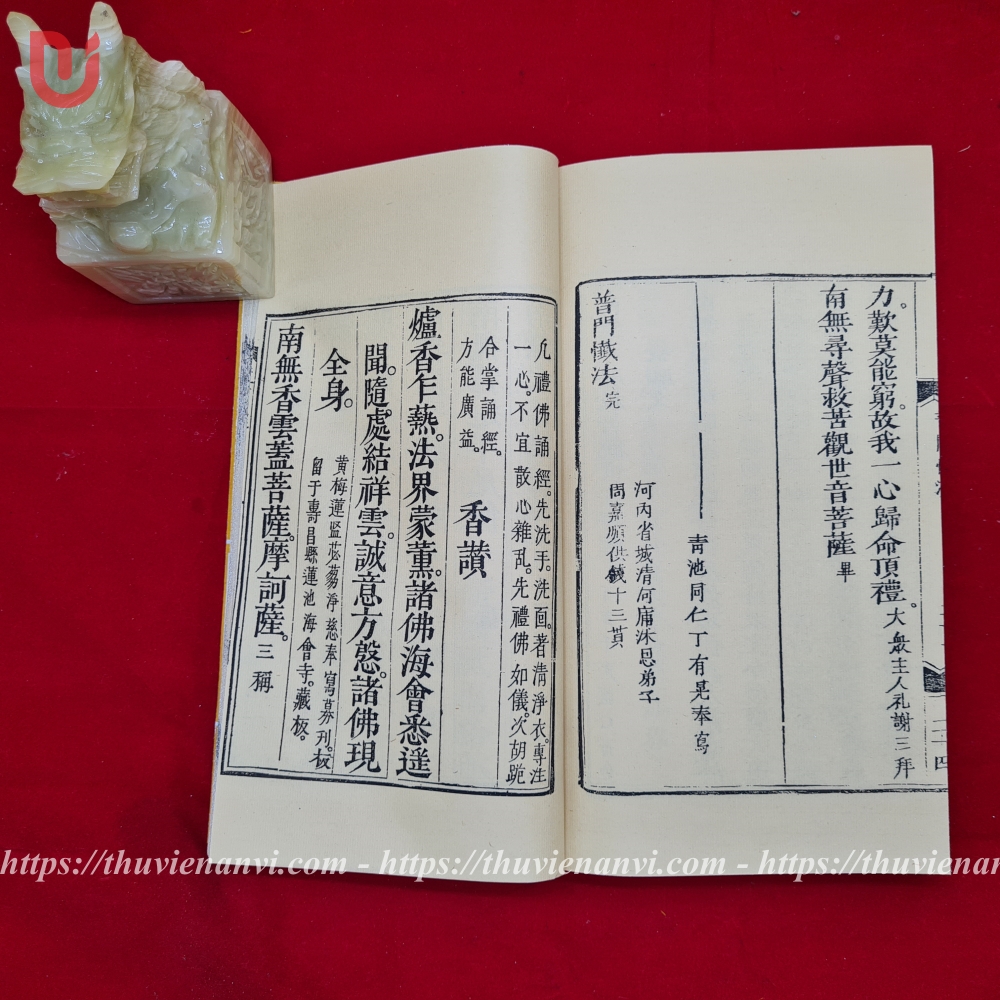 力。歎莫能窮。故我一心歸命頂禮。大衆主人礼謝三拜
南無尋聲救苦觀世音菩薩 畢
青池同仁丁有晃奉寫
河內省城清河庸沐恩弟子
周嘉願供錢十三貫
普門懺法 完
凢禮佛誦經。先洗手。洗面。著清淨衣。專注
一心。不宜散心雜乱。先禮佛如儀。次胡跪
合掌誦經。
方能廣益。
香讚
爐香乍爇。法界蒙薰。諸佛海會悉遥
聞。隨處結祥雲。誠意方慇。諸佛現
全身。
黄梅蓮監苾蒭淨慈奉寫募刊。板
留于壽昌縣蓮池海會寺。藏板。
南無香雲蓋菩薩。摩訶薩。三稱
https://thuvienanvi.com - https://thuvienanvi.com - https://thuvienanvi